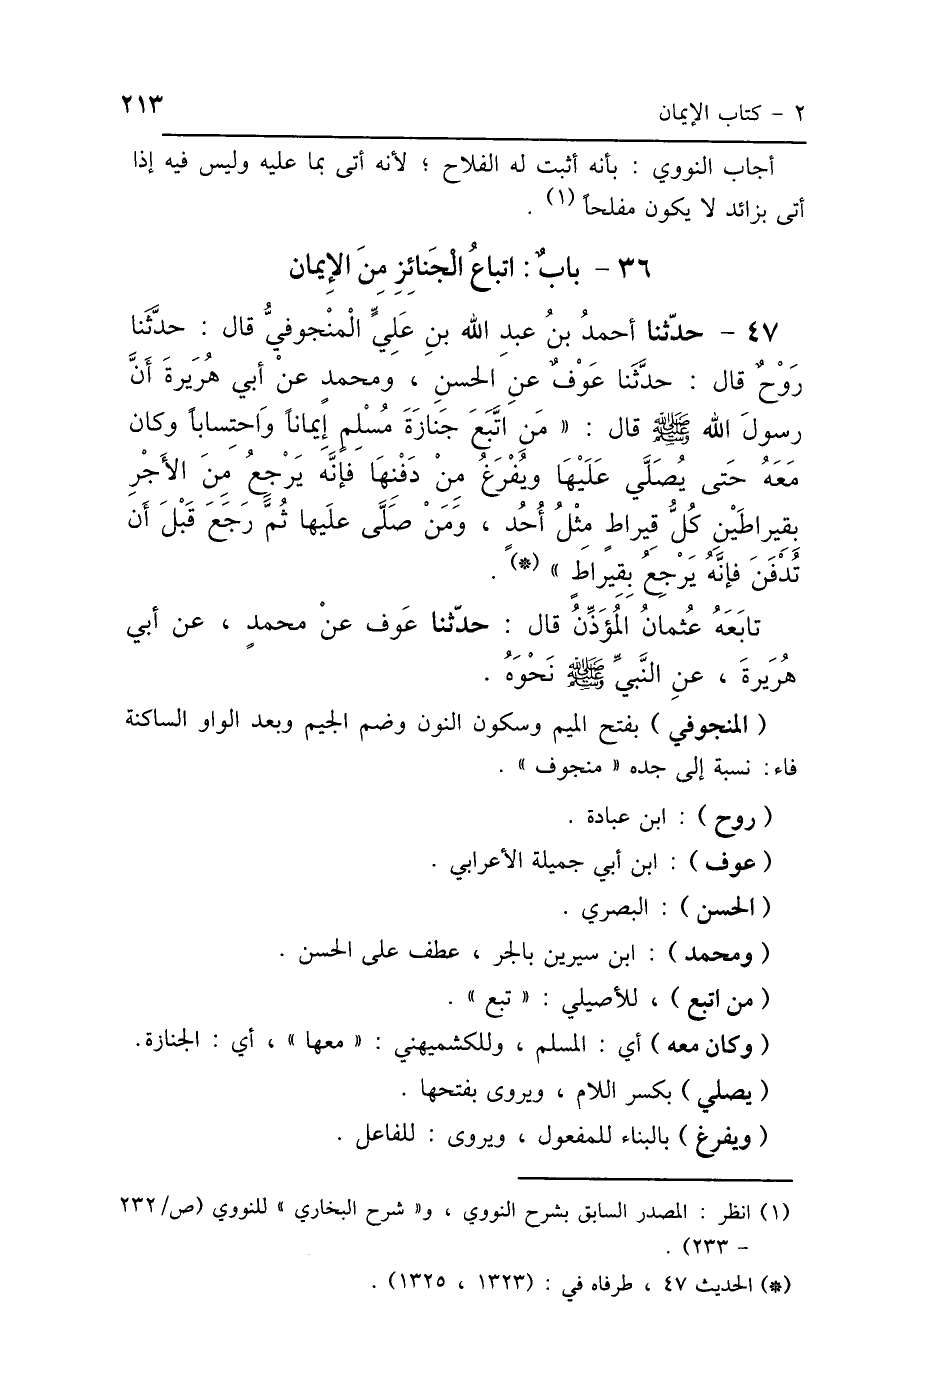 ٢ - كتاب الإيمان ٢١٣
أجاب النووي : بأنه أثبت له الفلاح ؛ لأنه أتى بما عليه وليس فيه إذا
أتى بزائد لا يكون مفلحاً (١) .
٣٦ - بابٌ : اتباعُ الْجَنائِزِ مِنَ الإِيمان
٤٧ - حدّثنا أحمدُ بنُ عبدِ الله بنِ عَلِيٍّ الْمنْجوفيُّ قال : حدَّثَنا
رَوْحٌ قال : حدَّثَنا عَوْفٌ عنِ الحسنِ ، ومحمدٍ عنْ أبي هُرَيرةَ أنَّ
رسولَ الله ﷺ قال : « مَنِ اتَّبَعَ جَنازَةَ مُسْلِمٍ إيماناً وَاحتِساباً وكان
مَعَهُ حَتى يُصَلَّي عَلَيْهَا ويُفْرَغُ مِنْ دَفْنِهَا فإنَّه يَرْجِعُ مِنَ الأَجْرِ
بِقيراطَيْنِ كُلُّ قيراطٍ مِثْلُ أُحُدٍ ، وَمَنْ صَلَّى علَيها ثُمَّ رَجَعَ قَبْلَ أن
تُدْفَنَ فإنَّهُ يَرْجِعُ بِقِيراطٍ » (*) .
تابَعَهُ عثمانُ المُؤَذِّنُ قال : حدّثنا عَوف عنْ محمدٍ ، عن أبي
هُرَيرةَ ، عنِ النَّبيِّ ﷺ نَحْوَهُ .
( المنجوفي ) بفتح الميم وسكون النون وضم الجيم وبعد الواو الساكنة
فاء : نسبة إلى جده « منجوف » .
( روح ) : ابن عبادة .
( عوف ) : ابن أبي جميلة الأعرابي .
( الحسن ) : البصري .
( ومحمد ) : ابن سيرين بالجر ، عطف على الحسن .
( من اتبع ) ، للأصيلي : « تبع » .
( وكان معه ) أي : المسلم ، وللكشميهني : « معها » ، أي : الجنازة.
( يصلي ) بكسر اللام ، ويروى بفتحها .
( ويفرغ ) بالبناء للمفعول ، ويروى : للفاعل .
(١) انظر : المصدر السابق بشرح النووي ، و« شرح البخاري » للنووي (ص/ ٢٣٢
- ٢٣٣) .
(*) الحديث ٤٧ ، طرفاه في : (١٣٢٣ ، ١٣٢٥) .